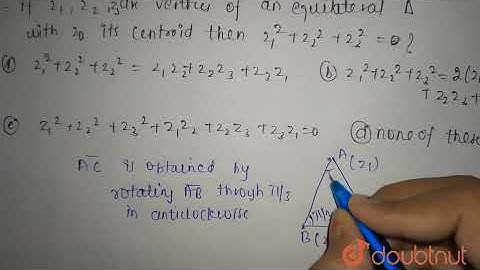 - If z₁, z₂, z₃ are vertices of an equilateral Δ
with z₀ its centroid then z₁² + z₂² + z₃² = ?
(a) z₁² + z₂² + z₃² = z₁z₂ + z₂z₃ + z₃z₁
(b) z₁² + z₂² + z₃² = 2(z₁
+ z₂z₃ +
(c) z₁² + z₂² + z₃² + z₁z₂ + z₂z₃ + z₃z₁ = 0
(d) none of these
AC is obtained by
rotating AB through π/3
in anticlockwise
A (z₁)
π/3
B (z
doubtnut